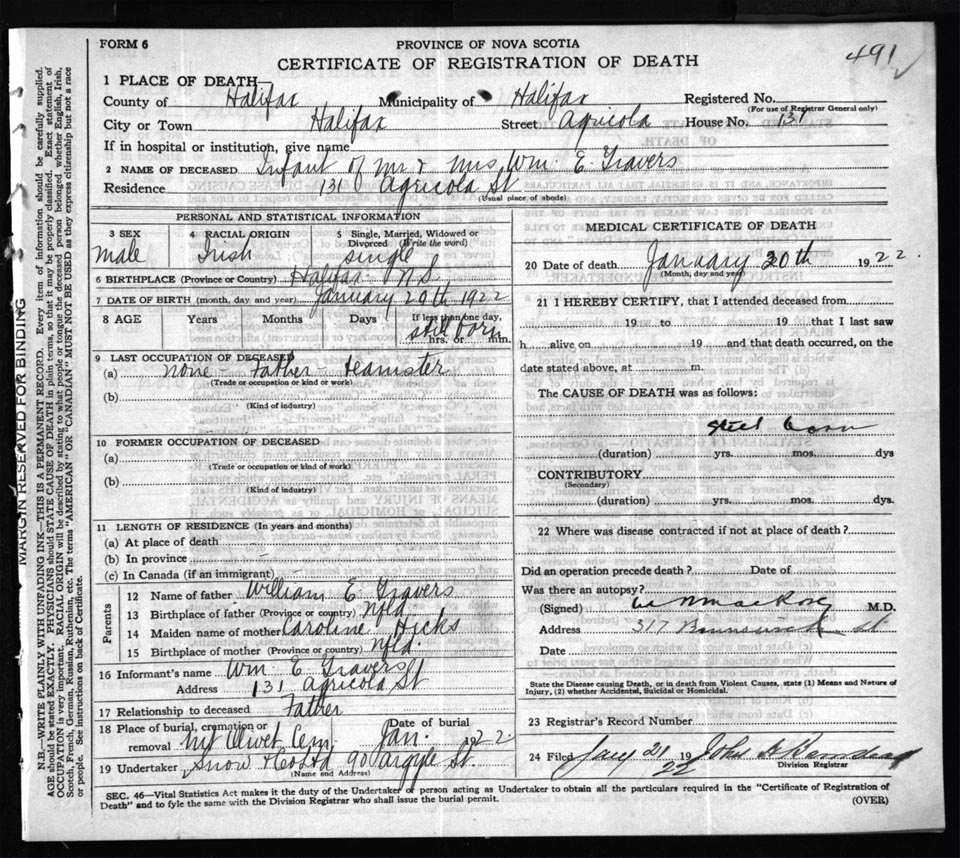 FORM 6
PROVINCE OF NOVA SCOTIA
CERTIFICATE OF REGISTRATION OF DEATH
491
1 PLACE OF DEATH—
County of Halifax Municipality of Halifax Registered No.
(For use of Registrar General only)
City or Town Halifax Street Agricola House No. 131
If in hospital or institution, give name
2 NAME OF DECEASED Infant of Mr & Mrs Wm. E. Travers
Residence 131 Agricola St
(Usual place of abode)
PERSONAL AND STATISTICAL INFORMATION
3 SEX 4 RACIAL ORIGIN 5 Single, Married, Widowed or Divorced (Write the word)
male Irish single
6 BIRTHPLACE (Province or Country) Halifax N.S.
7 DATE OF BIRTH (month, day and year) January 20th 1922
8 AGE Years Months Days If less than one day,
still born
hrs. or min.
9 LAST OCCUPATION OF DECEASED
(a) none - Father - Teamster
(Trade or occupation or kind or work)
(b)
(Kind of industry)
10 FORMER OCCUPATION OF DECEASED
(a)
(Trade or occupation or kind of work)
(b)
(Kind of industry)
11 LENGTH OF RESIDENCE (In years and months)
(a) At place of death
(b) In province
(c) In Canada (if an immigrant)
Parents
12 Name of father William E. Travers
13 Birthplace of father (Province or country) Nfld.
14 Maiden name of mother Caroline Hicks
15 Birthplace of mother (Province or country) Nfld.
16 Informant's name Wm. E. Travers
Address 131 Agricola St
17 Relationship to deceased Father
18 Place of burial, cremation or removal Mt Olivet Cem. Date of burial Jan. 1922.
19 Undertaker Snow & Co Ltd 90 Argyle St.
(Name and Address)
MEDICAL CERTIFICATE OF DEATH
20 Date of death January 20th 1922.
(Month, day and year)
21 I HEREBY CERTIFY, that I attended deceased from
19 to 19 that I last saw
h alive on 19 and that death occurred, on the
date stated above, at m.
The CAUSE OF DEATH was as follows:
Still born
(duration) yrs. mos. dys
CONTRIBUTORY
(Secondary)
(duration) yrs. mos. dys.
22 Where was disease contracted if not at place of death?
Did an operation precede death? Date of
Was there an autopsy?
(Signed) M.D.
Address 317 Brunswick St
Date
State the Disease causing Death, or in death from Violent Causes, state (1) Means and Nature of
Injury, (2) whether Accidental, Suicidal or Homicidal.
23 Registrar's Record Number
24 Filed Jany 21 1922 John
Division Registrar
SEC. 46—Vital Statistics Act makes it the duty of the Undertaker or person acting as Undertaker to obtain all the particulars required in the "Certificate of Registration of
Death" and to fyle the same with the Division Registrar who shall issue the burial permit.
(OVER)
MARGIN RESERVED FOR BINDING
N.B.—WRITE PLAINLY WITH UNFADING INK—THIS IS A PERMANENT RECORD. Every item of information should be carefully supplied.
AGE should be stated EXACTLY. PHYSICIANS should STATE CAUSE OF DEATH in plain terms, so that it may be properly classified. Exact statement of
OCCUPATION is very important. RACIAL ORIGIN will be described by stating to what people or tongue the deceased person belonged whether English, Irish,
Scotch, French, German, Russian, Ruthenian, etc. The terms "AMERICAN" OR "CANADIAN" MUST NOT BE USED as they express citizenship but not a race
or people. See instructions on back of Certificate.